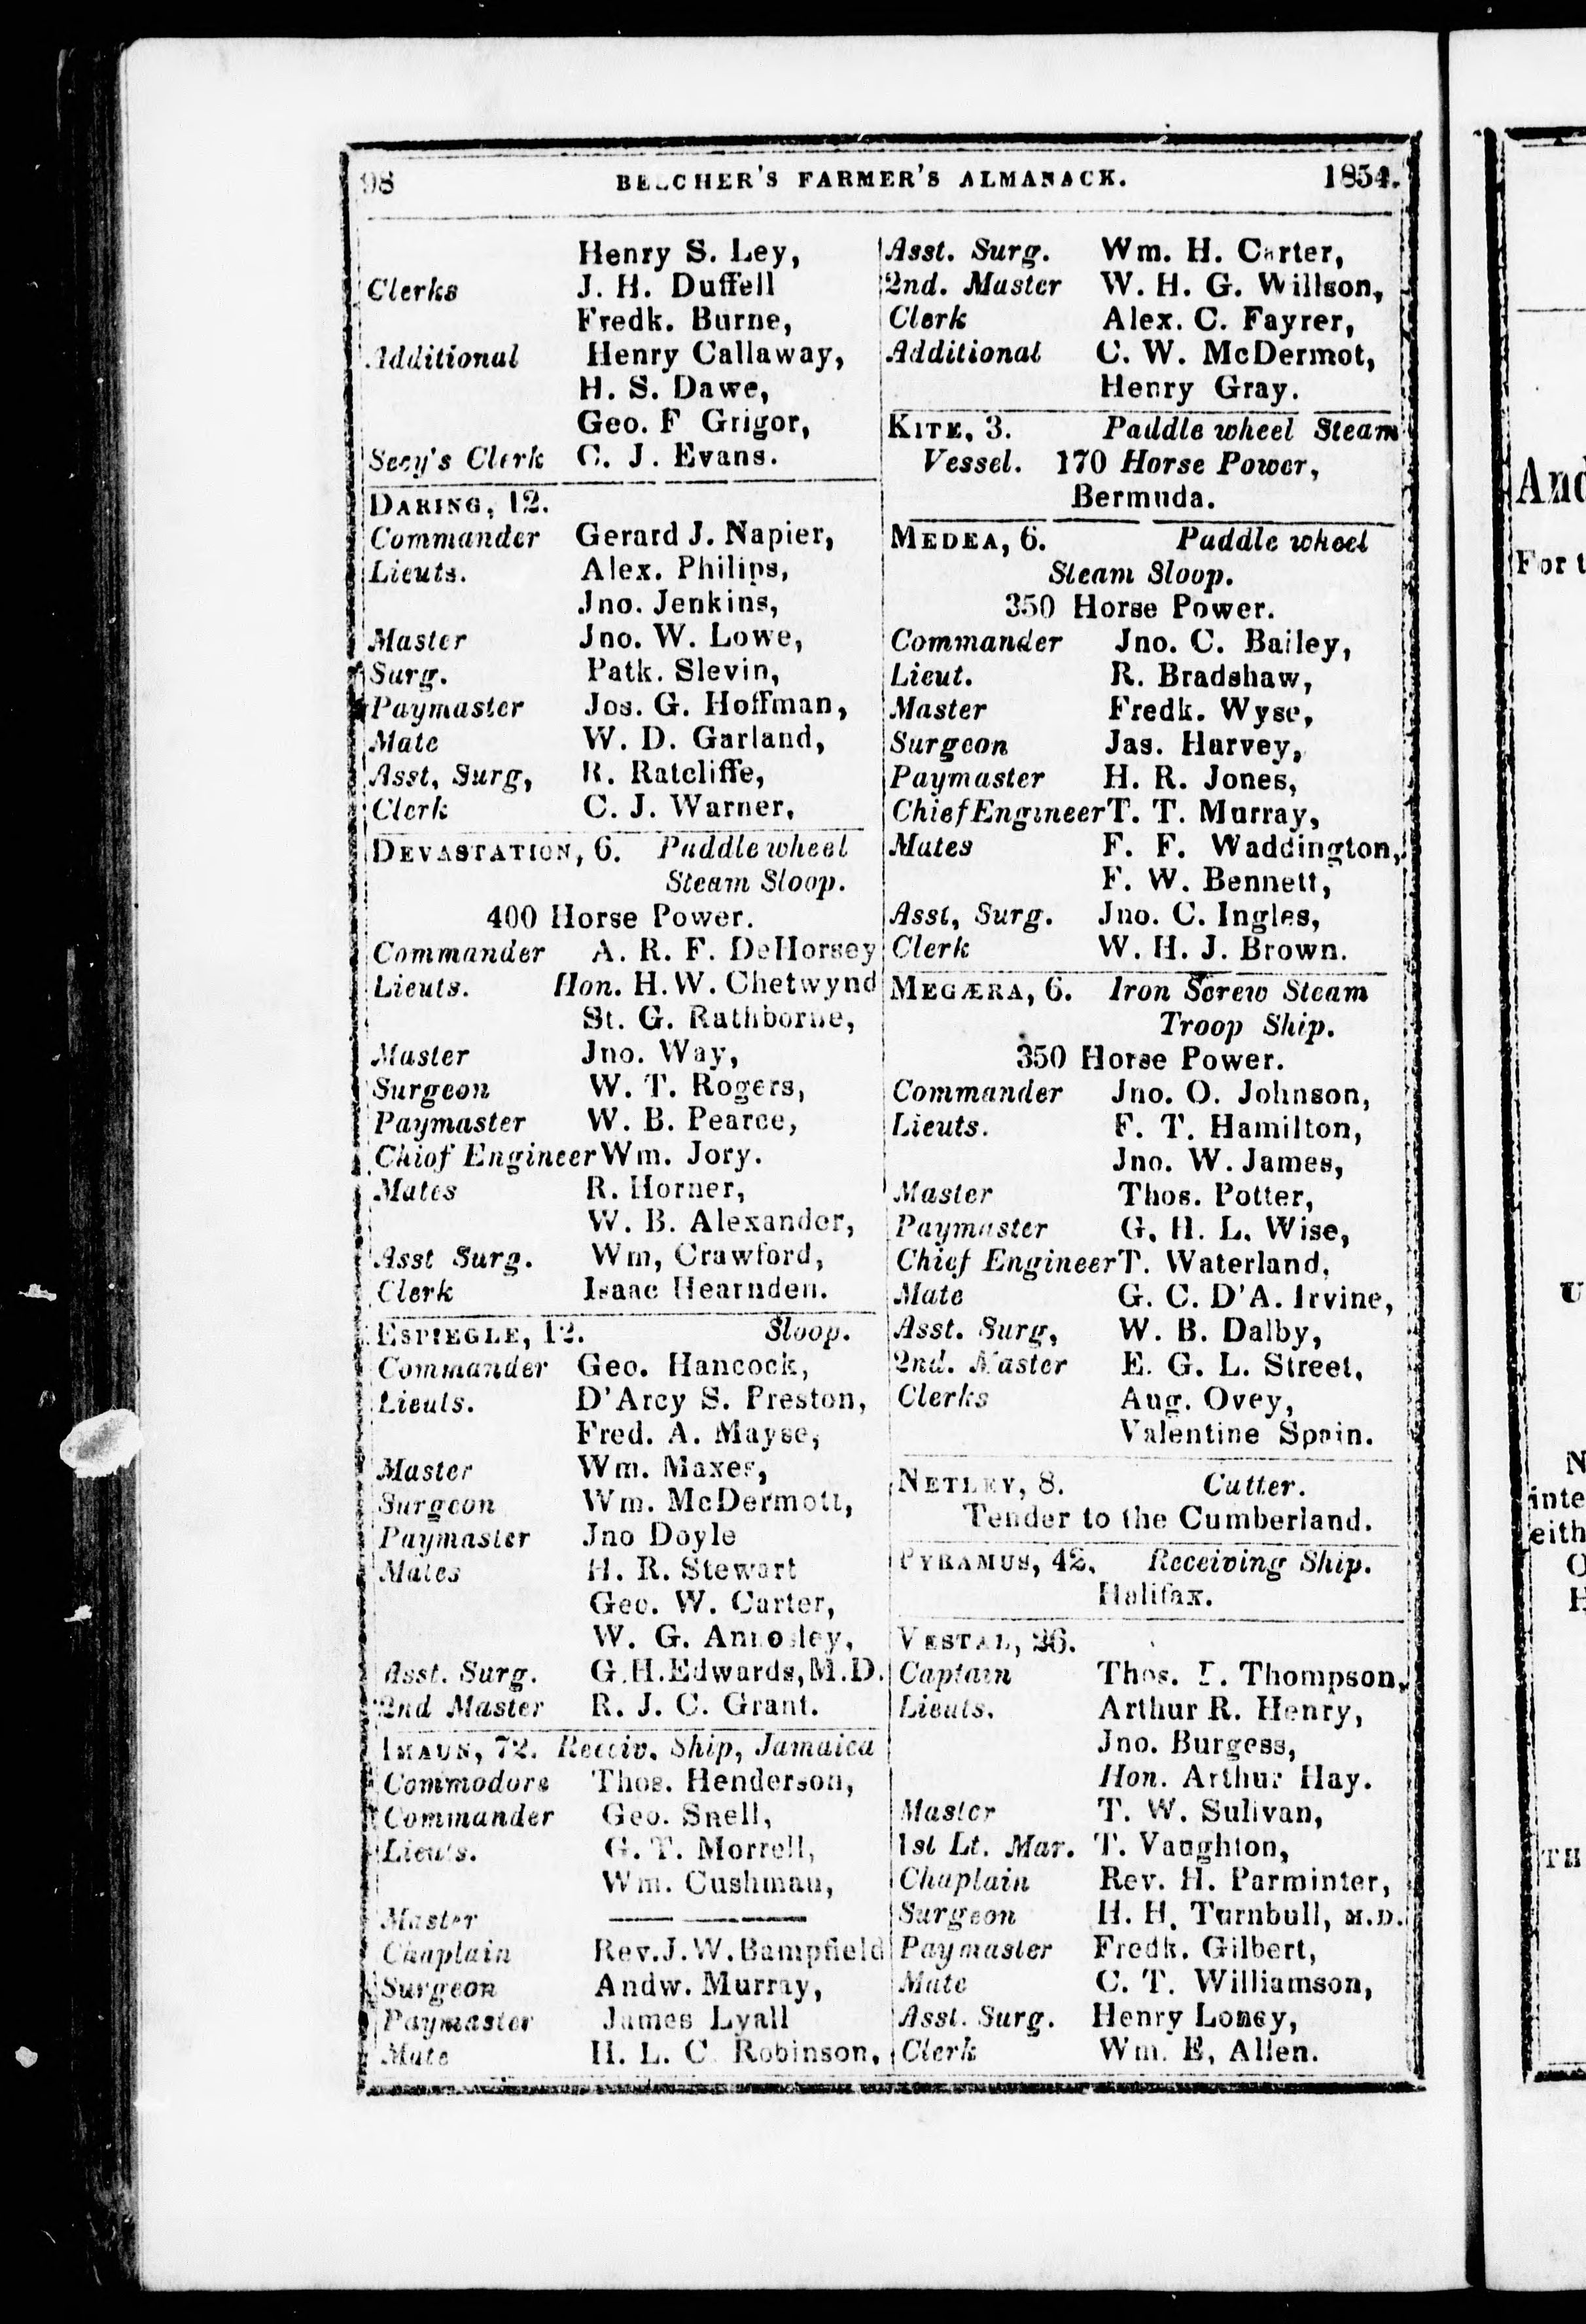 98 BELCHER'S FARMER'S ALMANACK. 1854.
Henry S. Ley,
Clerks J. H. Duffell
Fredk. Burne,
Additional Henry Callaway,
H. S. Dawe,
Geo. F Grigor,
Secy's Clerk C. J. Evans.
DARING, 12.
Commander Gerard J. Napier,
Lieuts. Alex. Philips,
Jno. Jenkins,
Master Jno. W. Lowe,
Surg. Patk. Slevin,
Paymaster Jos. G. Hoffman,
Mate W. D. Garland,
Asst, Surg, R. Ratcliffe,
Clerk C. J. Warner,
DEVASTATION, 6. Paddle wheel
Steam Sloop.
400 Horse Power.
Commander A. R. F. DeHorsey
Lieuts. Hon. H. W. Chetwynd
St. G. Rathborne,
Master Jno. Way,
Surgeon W. T. Rogers,
Paymaster W. B. Pearce,
Chiof Engineer Wm. Jory.
Mates R. Horner,
W. B. Alexander,
Asst Surg. Wm, Crawford,
Clerk Isaac Hearnden.
ESPIEGLE, 12. Sloop.
Commander Geo. Hancock,
Lieuts. D'Arcy S. Preston,
Fred. A. Mayse,
Master Wm. Maxes,
Surgeon Wm. McDermott,
Paymaster Jno Doyle
Mates H. R. Stewart
Geo. W. Carter,
W. G.
Asst. Surg. G. H. Edwards, M.D.
2nd Master R. J. C. Grant.
IMAUN, 72. Receiv. Ship, Jamaica
Commodore Thos. Henderson,
Commander Geo. Snell,
Lieuts. G. T. Morrell,
Wm. Cushman,
Master —— ——
Chaplain Rev. J. W. Bampfield
Surgeon Andw. Murray,
Paymaster James Lyall
Mate H. L. C Robinson,
Asst. Surg. Wm. H. Carter,
2nd. Master W. H. G. Willson,
Clerk Alex. C. Fayrer,
Additional C. W. McDermot,
Henry Gray.
KITE, 3. Paddle wheel Steam
Vessel. 170 Horse Power,
Bermuda.
MEDEA, 6. Paddle wheel
Steam Sloop.
350 Horse Power.
Commander Jno. C. Bailey,
Lieut. R. Bradshaw,
Master Fredk. Wyse,
Surgeon Jas. Harvey,
Paymaster H. R. Jones,
Chief Engineer T. T. Murray,
Mates F. F. Waddington,
F. W. Bennett,
Asst, Surg. Jno. C. Ingles,
Clerk W. H. J. Brown.
MEGÆRA, 6. Iron Screw Steam
Troop Ship.
350 Horse Power.
Commander Jno. O. Johnson,
Lieuts. F. T. Hamilton,
Jno. W. James,
Master Thos. Potter,
Paymaster G. H. L. Wise,
Chief Engineer T. Waterland,
Mate G. C. D'A. Irvine,
Asst. Surg, W. B. Dalby,
2nd. Master E. G. L. Street,
Clerks Aug. Ovey,
Valentine Spain.
NETLEY, 8. Cutter.
Tender to the Cumberland.
PYRAMUS, 42, Receiving Ship.
Halifax.
VESTAL, 26.
Captain Thos. Thompson,
Lieuts. Arthur R. Henry,
Jno. Burgess,
Hon. Arthur Hay.
Master T. W. Sulivan,
1st Lt. Mar. T. Vaughton,
Chaplain Rev. H. Parminter,
Surgeon H. H. Turnbull, M.D.
Paymaster Fredk. Gilbert,
Mate C. T. Williamson,
Asst. Surg. Henry Loney,
Clerk Wm. E, Allen.
And
For t
U
N
inte
eith
TH